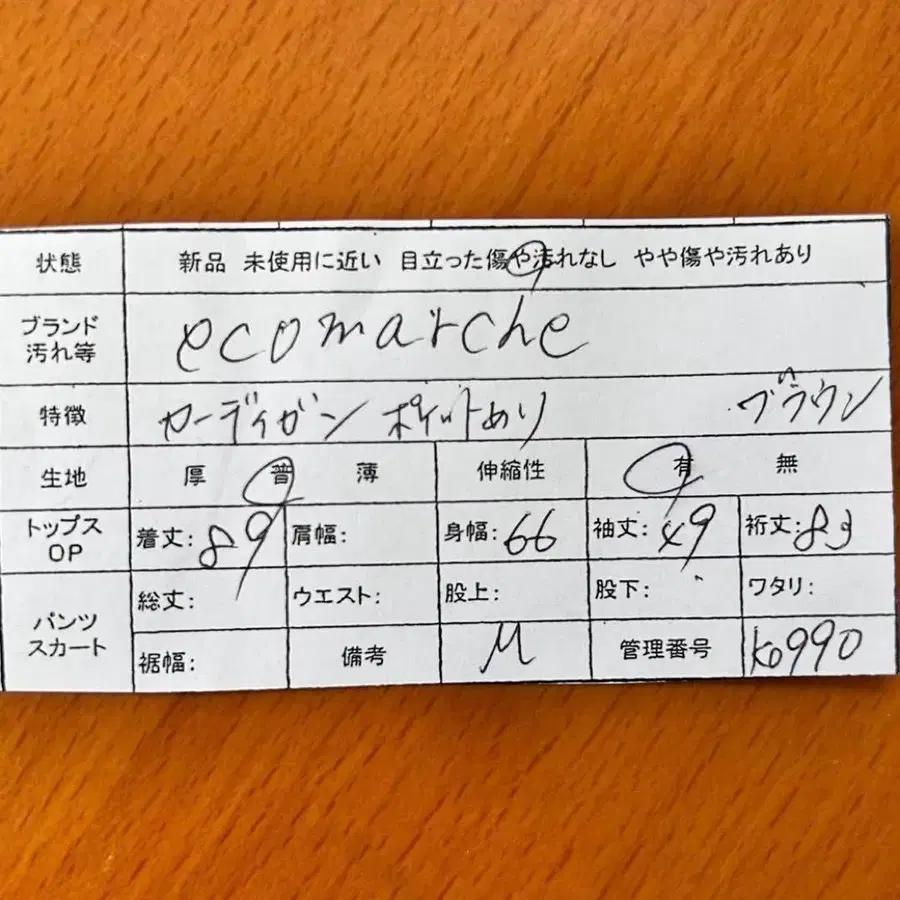 状態 新品 未使用に近い 目立った傷や汚れなし やや傷や汚れあり
ブランド 汚れ等 ecomarche
特徴 カーディガン ポケットあり ブラウン
生地 厚 普 薄 伸縮性 有 無
トップス OP 着丈:89 肩幅: 身幅:66 袖丈:49 裄丈:83
パンツ スカート 総丈: ウエスト: 股上: 股下: ワタリ:
裾幅: 備考 M 管理番号 K0990